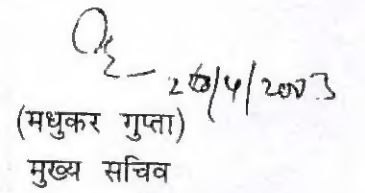 28/4/2003
(मधुकर गुप्ता)
मुख्य सचिव